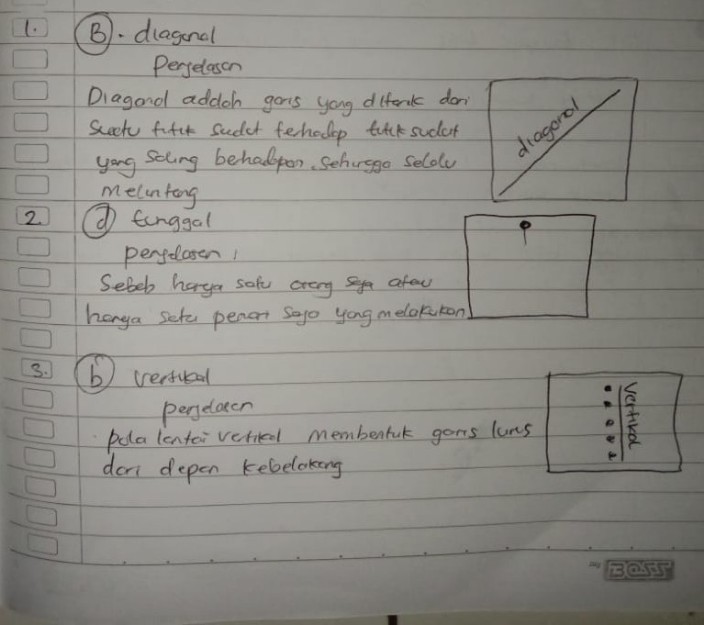 1. B. diagonal
Penjelasan
Diagonal adalah garis yang ditarik dari
Suatu titik sudut terhadap titik sudut
yang saling behadapan, sehingga selalu
melintang
diagonal
2 d tunggal
penjelasan,
Sebab hanya satu orang saja atau
hanya satu penari saja yang melakukan
3. b vertikal
penjelasan
pola lantai vertikal membentuk garis lurus
dari depan kebelakang
vertikal
BOSS